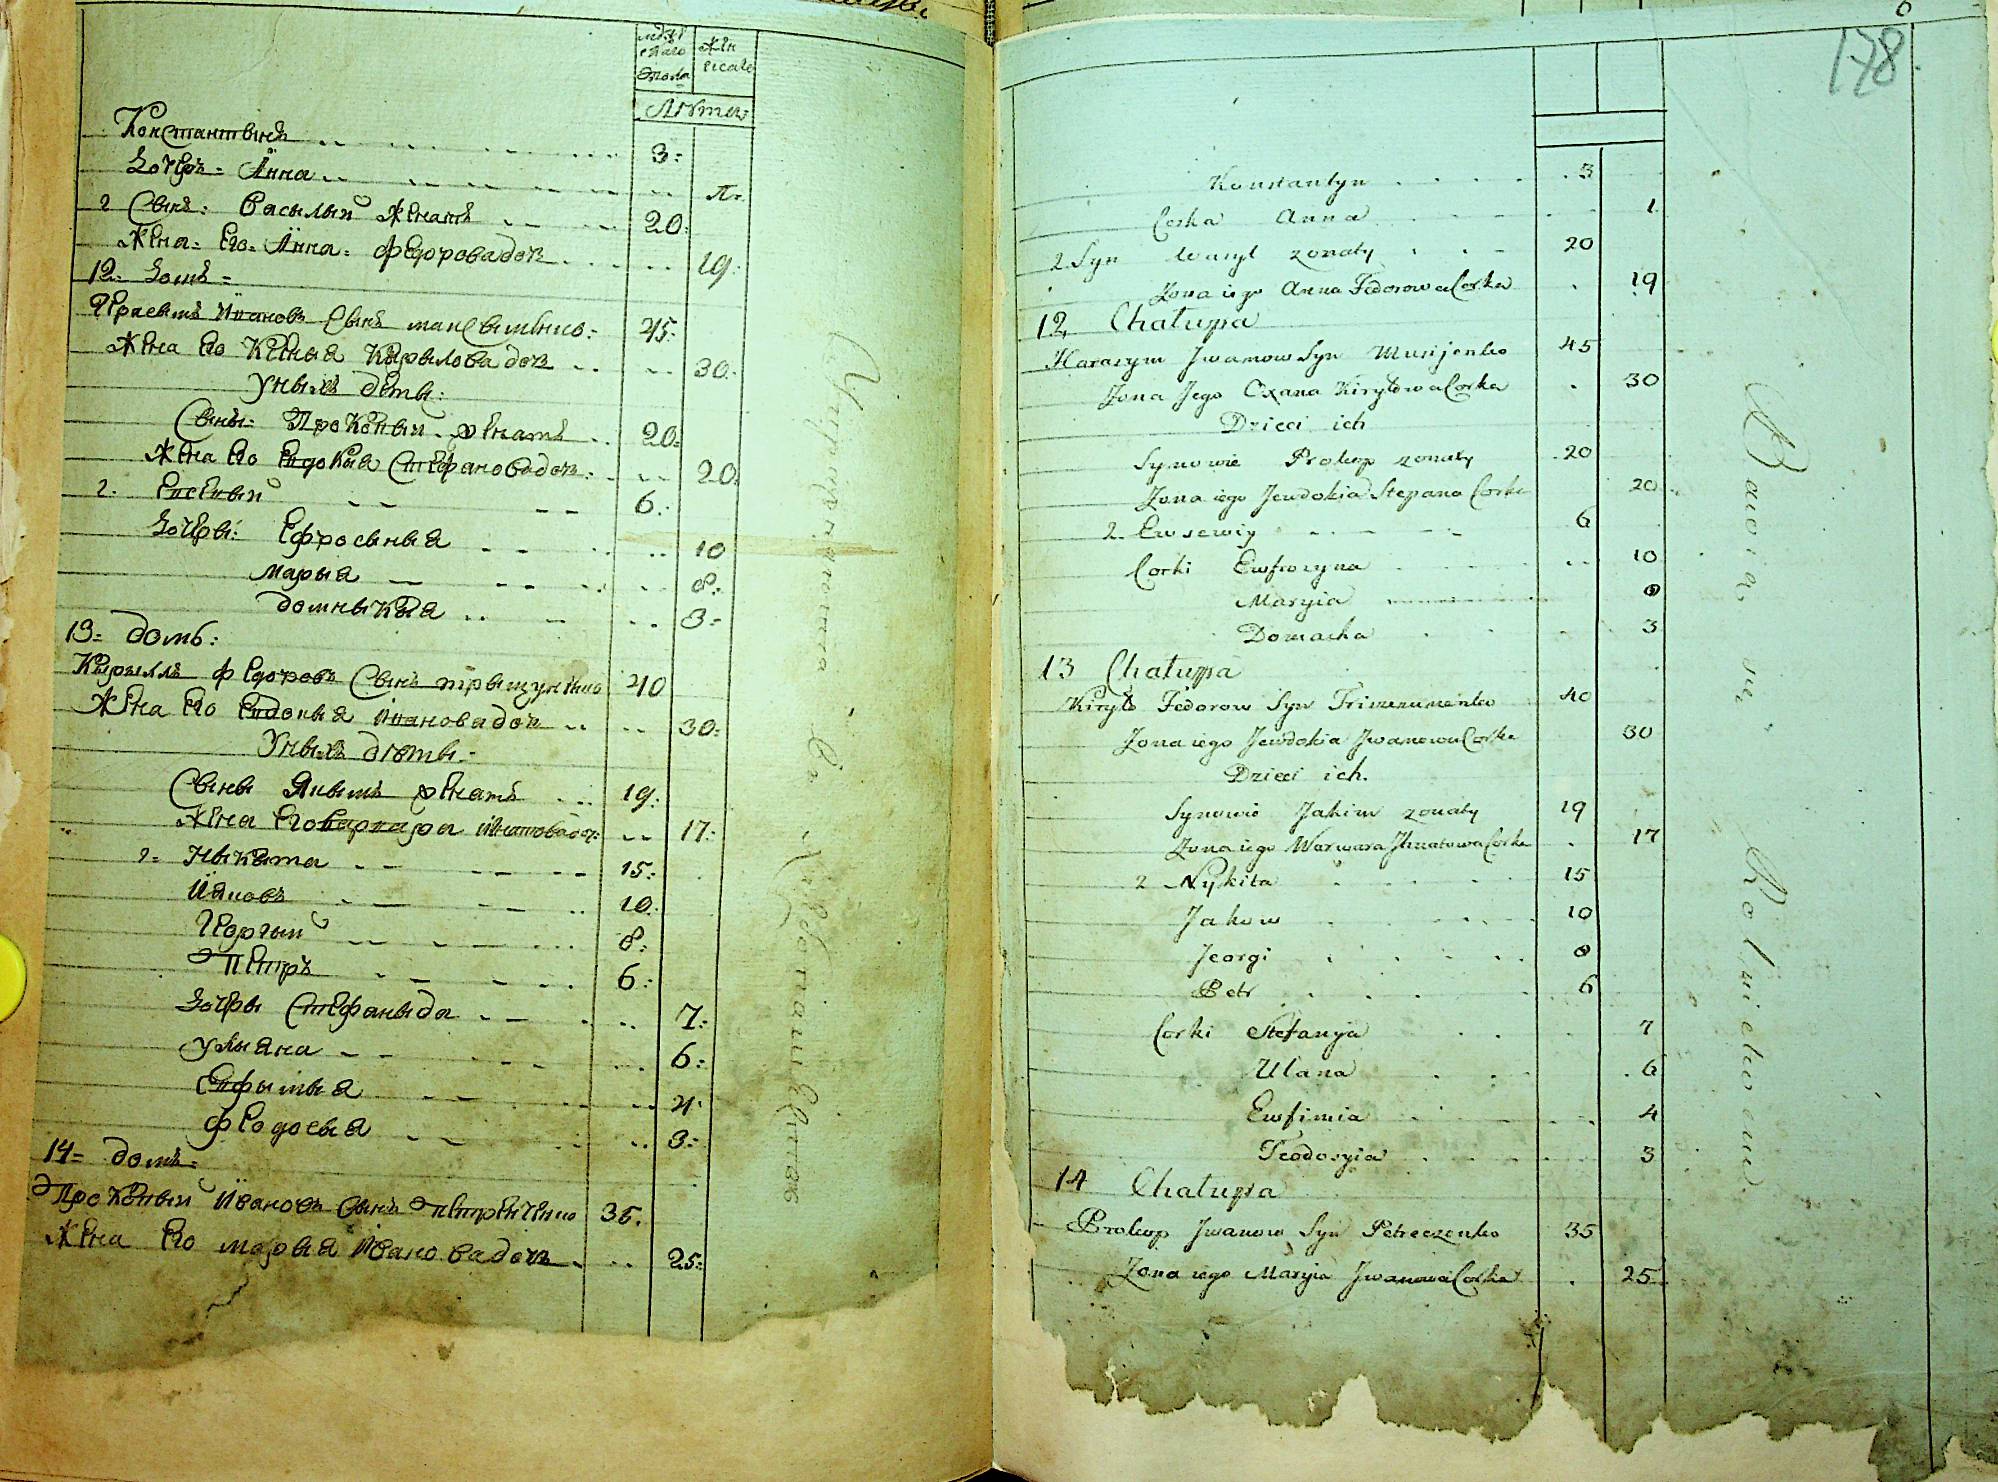 мужескаго пола
женска
Лѣта
Константынъ 3
Дочеръ Анна 1
2 Сынъ Василый женатъ 20
Жена Его Анна Федорова доч 19
12 Домъ
Герасымъ Ивановъ Сынъ 45
Жена Его Ксения Кырылова доч 30
У ных дѣты
Сыны Прокопый женатъ 20
Жена Его Евдокыя Стефанова доч 20
2 Евсевый 6
Дочеры Ефросыныя 10
Марыя 8
Домныкыя 3
13 Домъ
Кырыллъ Федоровъ Сынъ 40
Жена Его Евдокыя Иванова доч 30
У ных дѣты
Сыны Якымъ женатъ 19
Жена Его Варвара Игнатова доч 17
2 Ныкыта 15
Яковъ 10
Георгый 8
Петръ 6
Дочеры Стефаныда 7
Ульяна 6
Евфымыя 4
Федосыя 3
14 Домъ
Прокопый Ивановъ Сынъ 35
Жена Его Марыя Иванова доч 25
178
Konstantyn 3
Corka Anna 1
2 Syn Wasyl zonaty 20
Zona iego Anna Fedorowa Corka 19
12 Chatuppa
Harasym Jwanow Syn Musijenko 45
Zona Jego Oxana Kiryłowa Corka 30
Dzieci ich
Synowie Prokop zonaty 20
Zona iego Jewdokia Stepana Corka 20
2 Ewsewiy 6
Corki Ewfrozyna 10
Maryia 8
Domacha 3
13 Chatuppa
Kiryło Fedorow Syn 40
Zona iego Jewdokia Jwanowa Corka 30
Dzieci ich.
Synowie Jakim zonaty 19
Zona iego Warwara Jhnatowa Corka 17
2 Nykita 15
Jakow 10
Jeorgi 8
Petr 6
Corki Stefanja 7
Ulana 6
Ewfimia 4
Teodosyia 3
14 Chatuppa
Prokop Jwanow Syn Petreczenko 35
Zona iego Maryia Jwanowa Corka 25